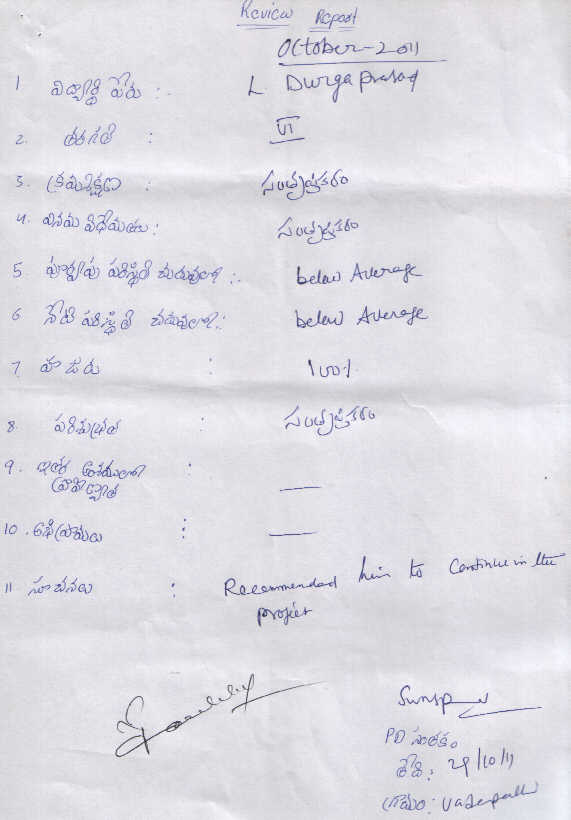 Review Report
October-2011
1 విద్యార్థి పేరు :- L Durga prasad
2. తరగతి : VI
3. క్రమశిక్షణ : సంతృప్తికరం
4. వినయ విధేయతలు : సంతృప్తికరం
5 పూర్వపు పరిస్థితి చదువులో :- below Average
6 నేటి పరిస్థితి చదువులో :- below Average
7. హాజరు : 100%
8. పరిశుభ్రత : సంతృప్తికరం
9. ఇతర అంశములలో :
ప్రావీణ్యత —
10. అభిప్రాయం : —
11 సూచనలు : Recommended him to continue in the
project
PD సంతకం
తేది : 29/10/11
గ్రామం :